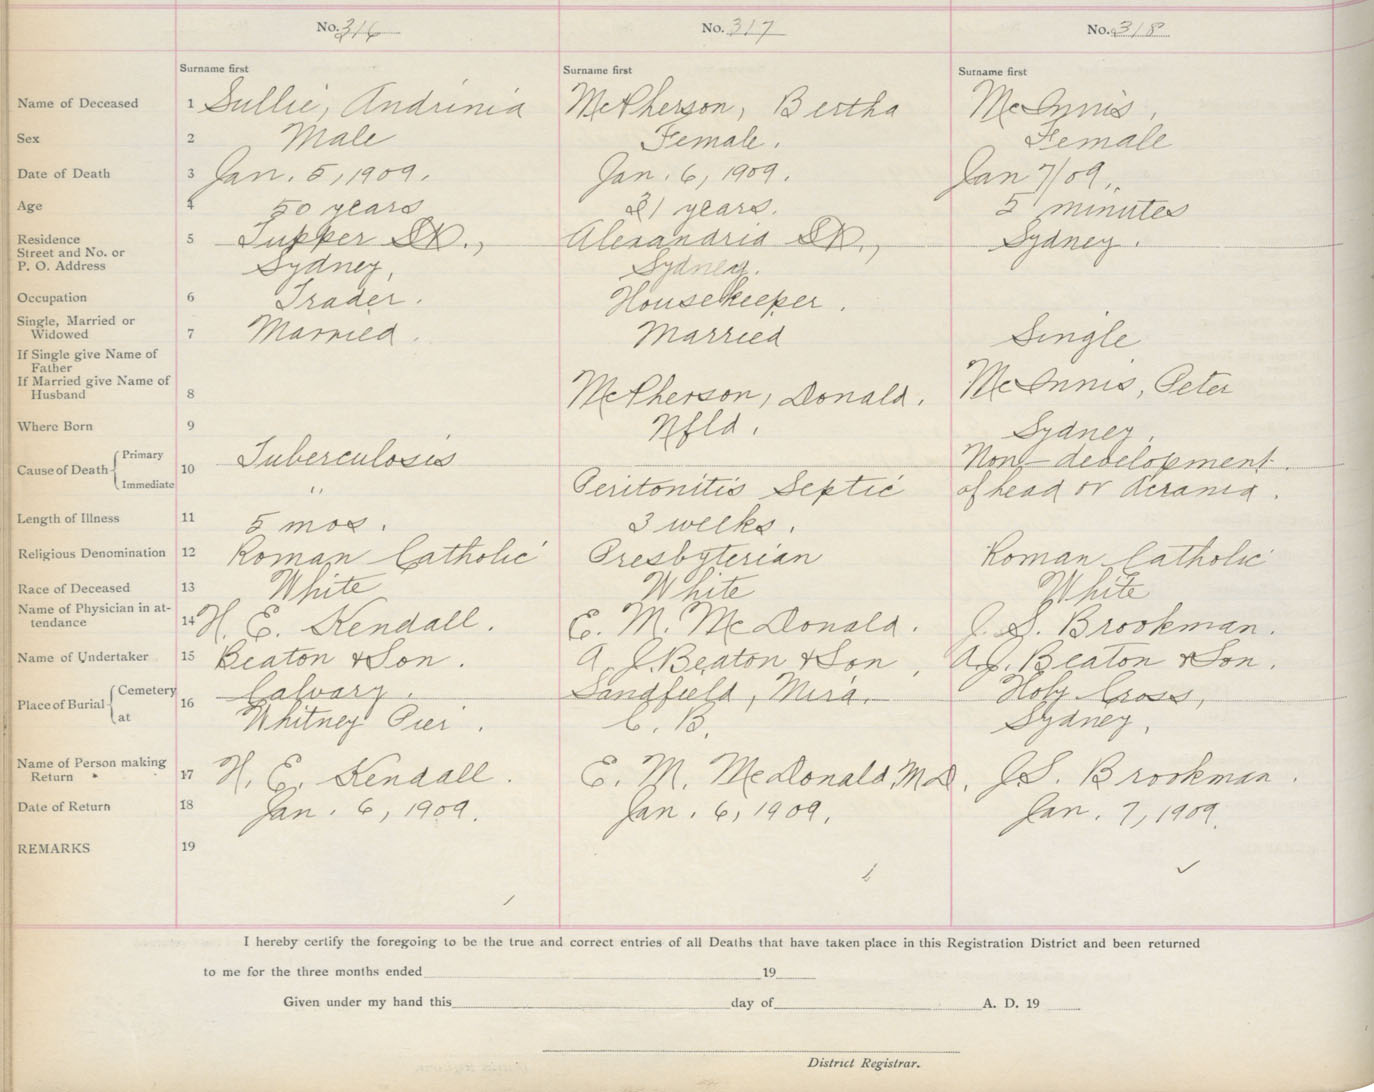 No. 316 No. 317 No. 318
Surname first Surname first Surname first
Name of Deceased 1 Sullic, Andrinia McPherson, Bertha McInnis,
Sex 2 Male Female. Female
Date of Death 3 Jan. 5, 1909. Jan. 6, 1909. Jan 7/09.
Age 4 50 years 31 years. 5 minutes
Residence 5 Tupper St., Alexandria St., Sydney.
Street and No. or
P. O. Address Sydney, Sydney.
Occupation 6 Trader. Housekeeper.
Single, Married or
Widowed 7 Married. Married Single
If Single give Name of
Father
If Married give Name of
Husband 8 McPherson, Donald. McInnis, Peter
Where Born 9 Nfld. Sydney.
Cause of Death Primary 10 Tuberculosis Non-development
Immediate " Peritonitis Septic of head or Acrania.
Length of Illness 11 5 mos. 3 weeks.
Religious Denomination 12 Roman Catholic Presbyterian Roman Catholic
Race of Deceased 13 White White White
Name of Physician in at-
tendance 14 H. E. Kendall. E. M. McDonald. J. S. Brookman.
Name of Undertaker 15 Beaton & Son. A J. Beaton & Son, A.J. Beaton & Son.
Place of Burial Cemetery 16 Calvary. Sandfield, Mira. Holy Cross,
at Whitney Pier. C. B. Sydney.
Name of Person making
Return 17 H. E. Kendall. E. M. McDonald, M.D. J.S. Brookman.
Date of Return 18 Jan. 6, 1909. Jan. 6, 1909. Jan. 7, 1909.
REMARKS 19
I hereby certify the foregoing to be the true and correct entries of all Deaths that have taken place in this Registration District and been returned
to me for the three months ended 19
Given under my hand this day of A. D. 19
District Registrar.